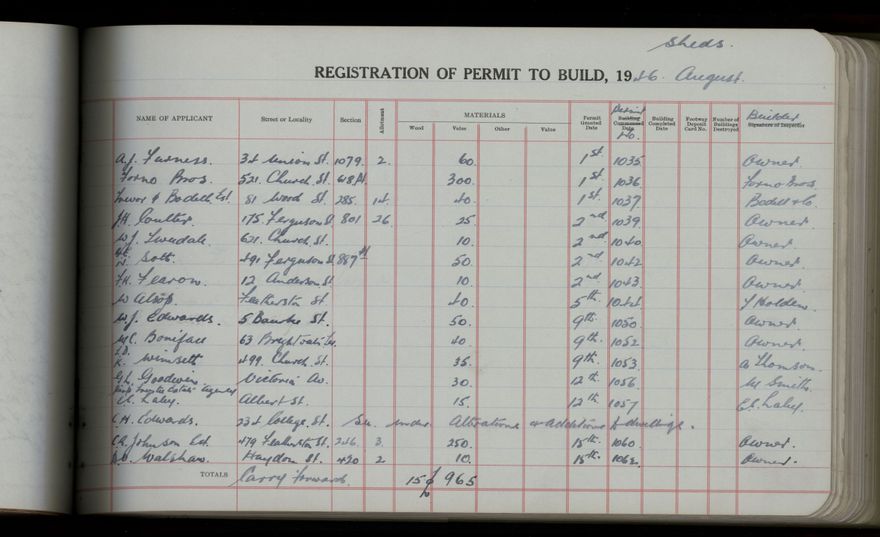 Sheds.
REGISTRATION OF PERMIT TO BUILD, 1946 August.
NAME OF APPLICANT Street or Locality Section Allotment MATERIALS Wood Value Other Value Permit Granted Date Permit No. Building Commenced Date Building Completed Date Footway Deposit Card No. Number of Buildings Destroyed Builder Signature of Inspector
A.J. Furness. 34 Union St. 1079. 2. 60. 1st. 1035 Owner.
Forno Bros. 521. Church St. 300. 1st. 1036 Forno Bros.
Trevor & Bodell Ltd. 81 Wood St. 285. 14. 40. 1st. 1037 Bodell & Co.
J.H. Coulter. 175 Ferguson St 801 26. 25. 2nd 1039 Owner.
W.J. Tweedale. 621. Church St. 10. 2nd 1040 Owner.
Scott. 491 Ferguson St 887 50 2nd. 1042 Owner.
F.H. Fearon. 12 Anderson St 10. 2nd. 1043. Owner.
W Alsop. Featherston St 40. 5th. 1044 J Holden.
W.J. Edwards. 5 Bourke St. 50. 9th. 1050 Owner.
Boniface 63 40. 9th. 1052 Owner.
Winsett 499. Church St. 35. 9th. 1053 Thomson.
G.L. Goodwin Victoria Av. 30. 12th. 1056 Smith.
Laley. Albert St. 15. 12th. 1057 Laley.
C.H. Edwards. 234 College St. See under Alterations & additions to dwellings.
Johnson Ltd. 479 Featherston St. 246. 3. 250. 15th. 1060. Owner.
Walshaw. Haydon St. 420 2 10. 15th. 1062. Owner.
TOTALS Carry Forward. 15 £ 965